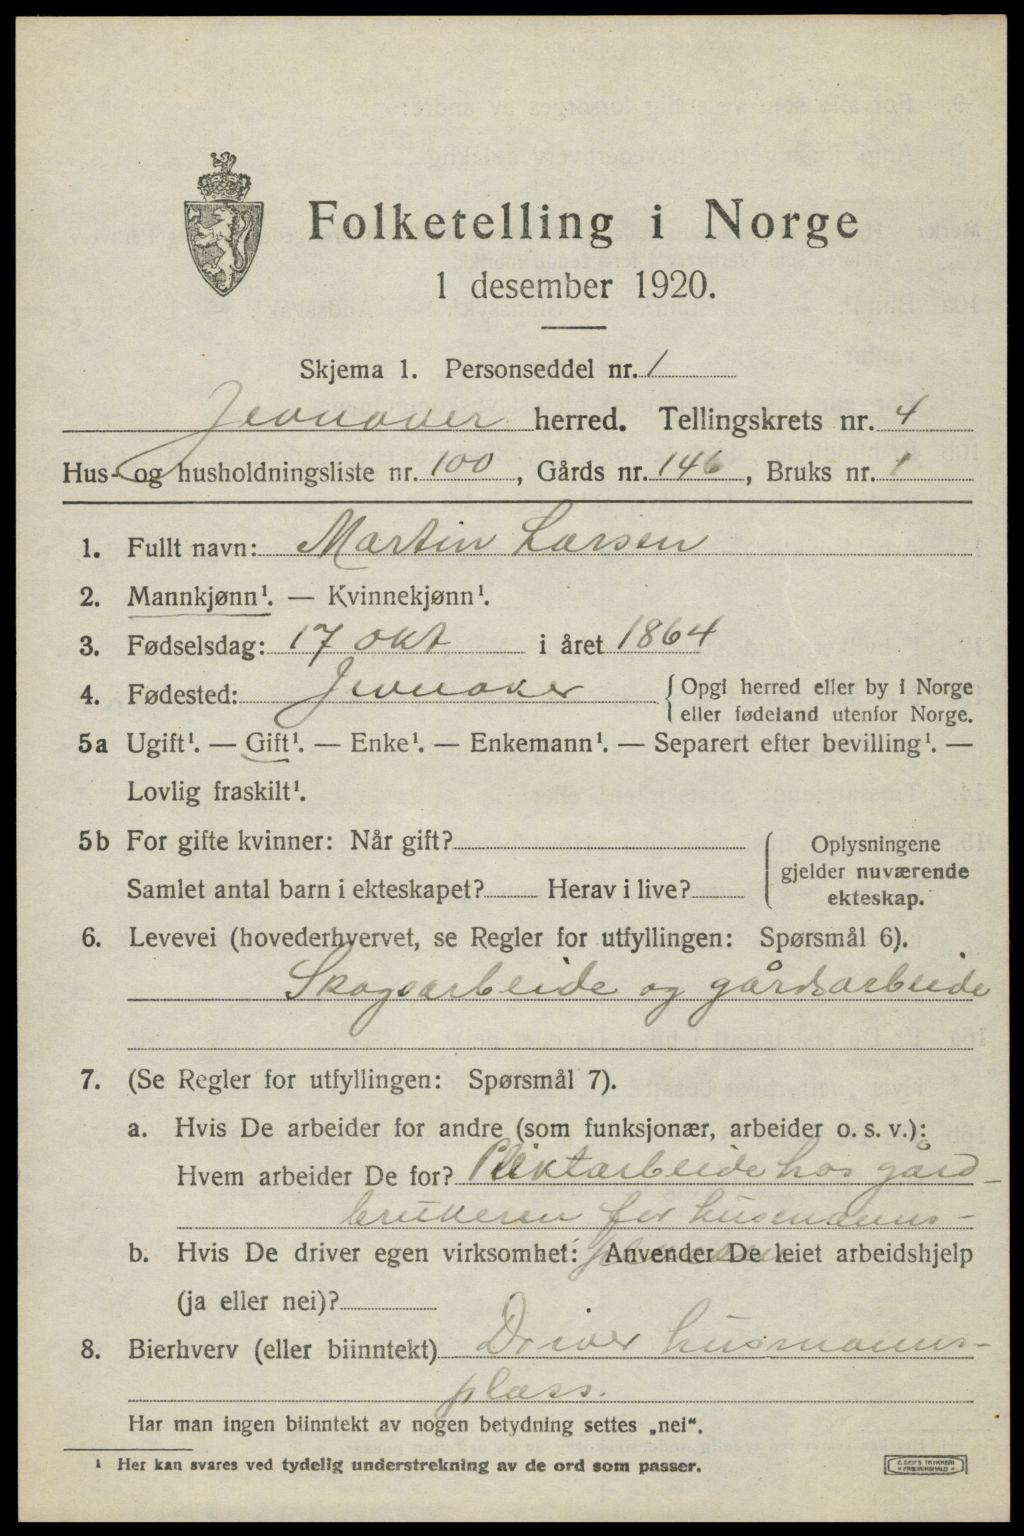 Folketelling i Norge
1 desember 1920.
Skjema 1. Personseddel nr. 1
Jevnaker herred. Tellingskrets nr. 4
Hus- og husholdningsliste nr. 100, Gårds nr. 146, Bruks nr. 1
1. Fullt navn: Martin Larsen
2. Mannkjønn¹. — Kvinnekjønn¹.
3. Fødselsdag: 17 okt i året 1864
4. Fødested: Jevnaker { Opgi herred eller by i Norge
eller fødeland utenfor Norge.
5a Ugift¹. — Gift¹. — Enke¹. — Enkemann¹. — Separert efter bevilling¹. —
Lovlig fraskilt¹.
5b For gifte kvinner: Når gift?
Samlet antal barn i ekteskapet? Herav i live?
Oplysningene
gjelder nuværende
ekteskap.
6. Levevei (hovederhvervet, se Regler for utfyllingen: Spørsmål 6).
Skogsarbeide og gårdsarbeide
7. (Se Regler for utfyllingen: Spørsmål 7).
a. Hvis De arbeider for andre (som funksjonær, arbeider o. s. v.):
Hvem arbeider De for? Pliktarbeide hos gård-
brukeren for husmanns-
plassen
b. Hvis De driver egen virksomhet: Anvender De leiet arbeidshjelp
(ja eller nei)?
8. Bierhverv (eller biinntekt) Driver husmanns-
plass.
Har man ingen biinntekt av nogen betydning settes „nei".
¹ Her kan svares ved tydelig understrekning av de ord som passer.